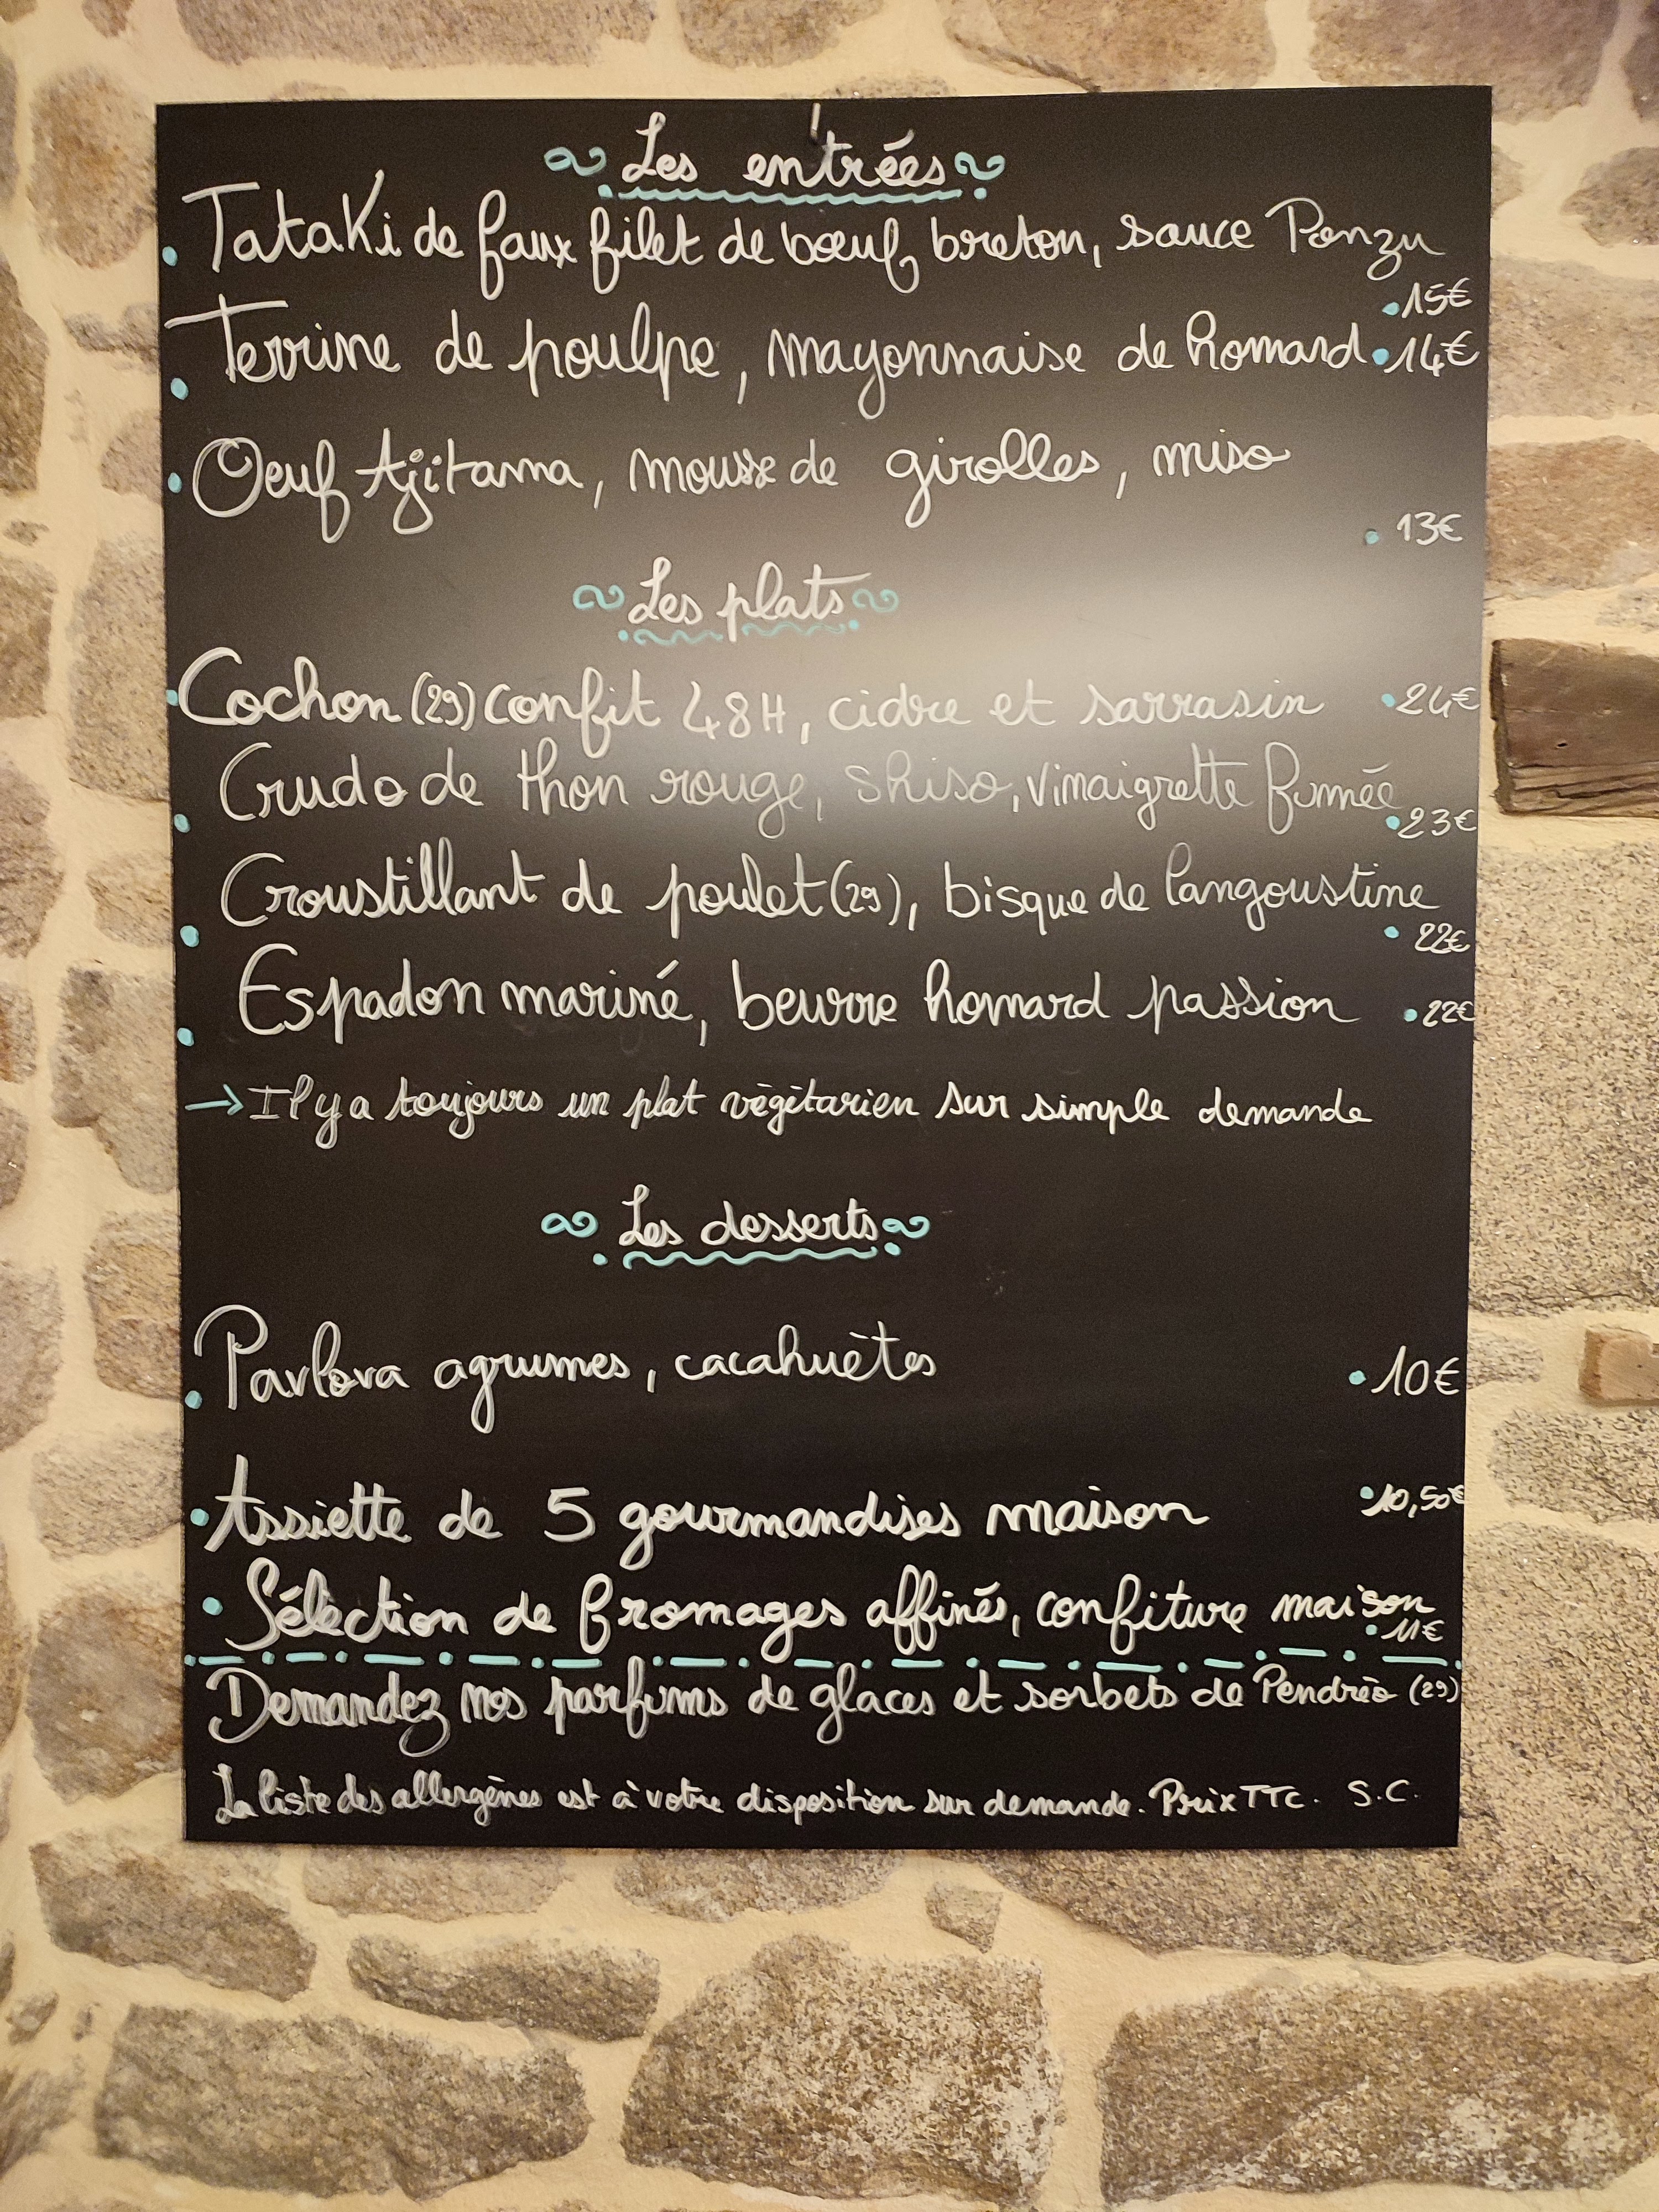 Les entrées
Tataki de faux filet de bœuf breton, sauce Ponzu
15€
Terrine de poulpe, mayonnaise de homard 14€
Oeuf Ajitama, mousse de girolles, miso
13€
Les plats
Cochon (29) confit 48H, cidre et sarrasin 24€
Crudo de thon rouge, shiso, vinaigrette fumée
23€
Croustillant de poulet (29), bisque de langoustine
22€
Espadon mariné, beurre homard passion 22€
→ Il y a toujours un plat végétarien sur simple demande
Les desserts
Pavlova agrumes, cacahuètes 10€
Assiette de 5 gourmandises maison 10,50€
Sélection de fromages affinés, confiture maison
11€
Demandez nos parfums de glaces et sorbets de Pendréo (29)
La liste des allergènes est à votre disposition sur demande. Prix TTC. S.C.